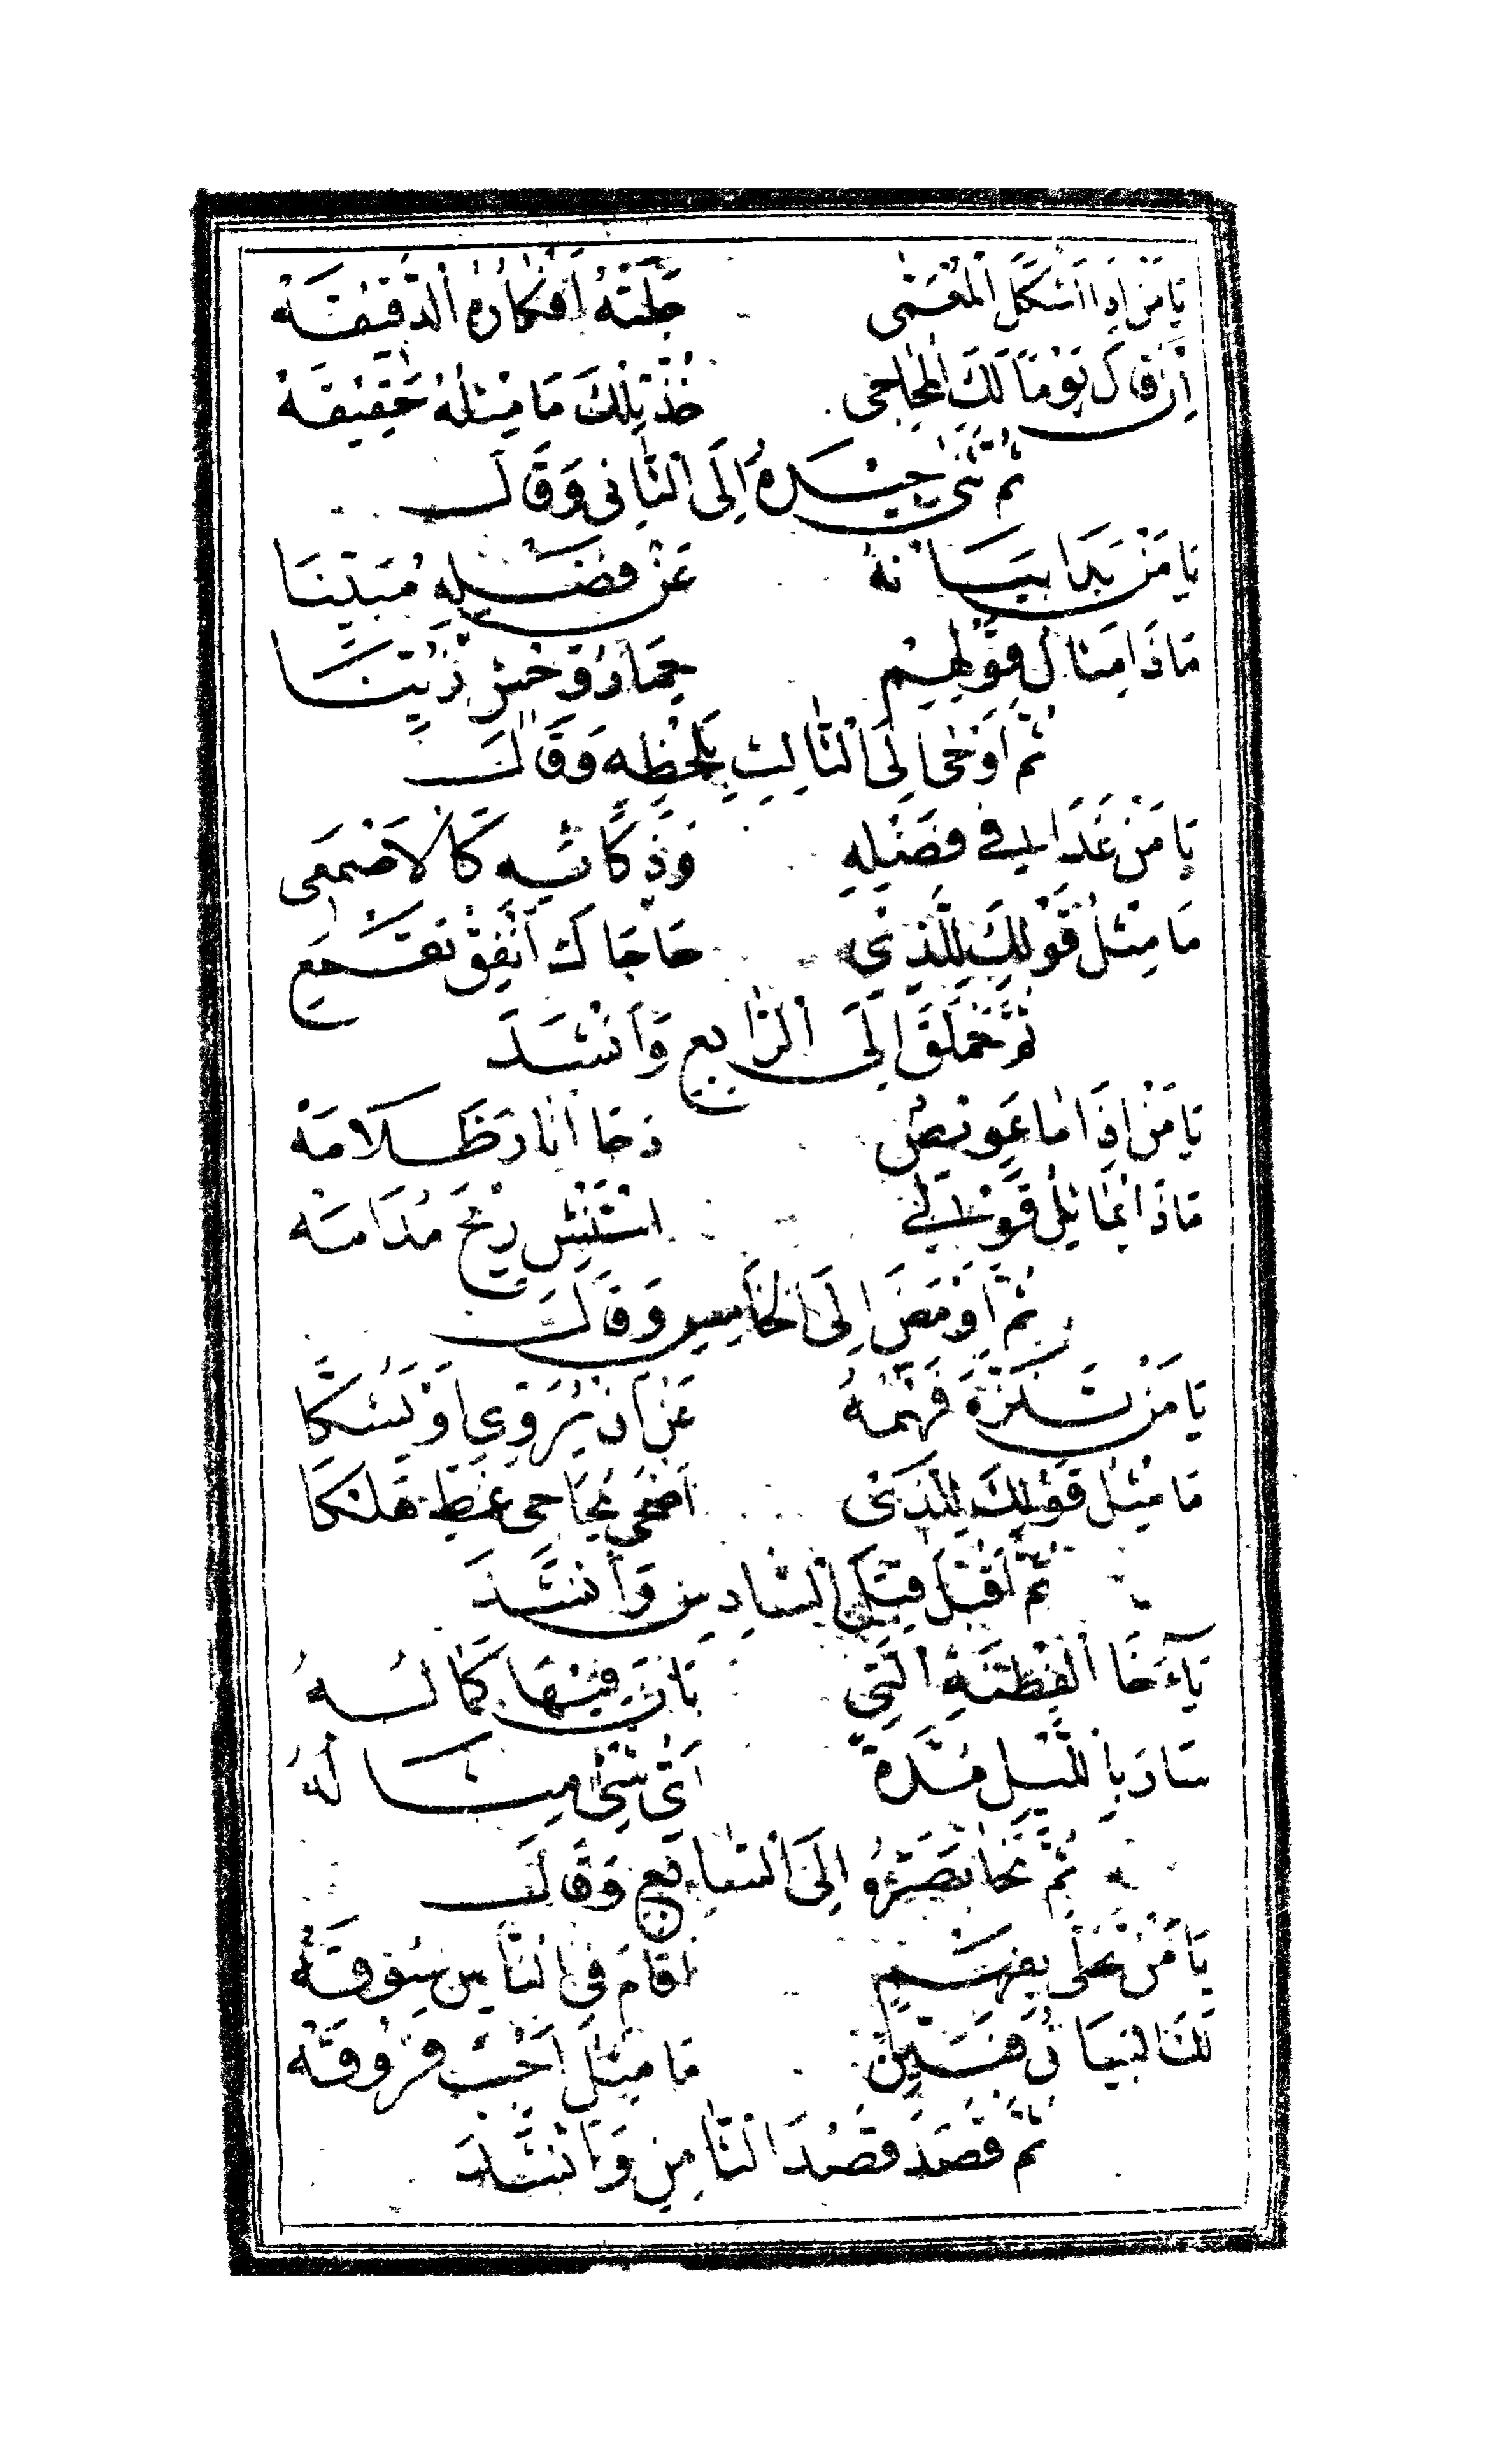 يَا مَنْ اِذَا اَشْكَلَ الْمُعَمّٰى جَلَتْهُ اَفْكَارُهُ الدَّقِيْقَهْ
اِنْ قَالَ يَوْمًا لَكَ الْمُحَاجِى خُذْ تِلْكَ مَا مِثْلُهُ حَقِيْقَهْ
ثُمَّ ثَنٰى جِيْدَهُ اِلَى الثَّانِى وَقَالَ
يَا مَنْ بَدَا بَيَانُهُ عَنْ فَضْلِهِ مُبَيِّنَا
مَاذَا مِثَالُ قَوْلِهِمْ حِمَارُ وَحْشٍ زُيِّنَا
ثُمَّ اَوْحٰى اِلَى الثَّالِثِ بِلَحْظِهِ وَقَالَ
يَا مَنْ غَدَا فِى فَضْلِهِ وَذَكَائِهِ كَالْاَصْمَعِى
مَا مِثْلُ قَوْلِكَ لِلَّذِى حَاجَاكَ اَنْفِقْ تَقْمَعِ
ثُمَّ حَمْلَقَ اِلَى الرَّابِعِ وَاَنْشَدَ
يَا مَنْ اِذَا مَا عَوِيْصٌ دَجَا اَنَارَ ظَلَامَهْ
مَاذَا يُمَاثِلُ قَوْلِى اِسْتَنْشِ رِيْحَ مُدَامَهْ
ثُمَّ اَوْمَضَ اِلَى الْخَامِسِ وَقَالَ
يَا مَنْ تَنَزَّهَ فَهْمُهُ عَنْ اَنْ يُرَوِّىَ اَوْ يَشُكَّا
مَا مِثْلُ قَوْلِكَ لِلَّذِى اَضْحٰى يُحَاجِى غَطِّ هَلْكَا
ثُمَّ اَقْبَلَ قِبَلَ السَّادِسِ وَاَنْشَدَ
يَآ اَخَا الْفِطْنَةِ الَّتِى بَانَ فِيْهَا كَمَالُهُ
سَارَ بِاللَّيْلِ مُدَّةً اَىُّ شَىْءٍ مِثَالُهُ
ثُمَّ نَحَا بَصَرَهُ اِلَى السَّابِعِ وَقَالَ
يَا مَنْ تَحَلّٰى بِفَهْمٍ اَقَامَ فِى النَّاسِ سُوْقَهْ
لَكَ الْبَيَانُ فَبَيِّنْ مَا مِثْلُ اَحْبِبْ فَرُوْقَهْ
ثُمَّ قَصَدَ قَصْدَ الثَّامِنِ وَاَنْشَدَ